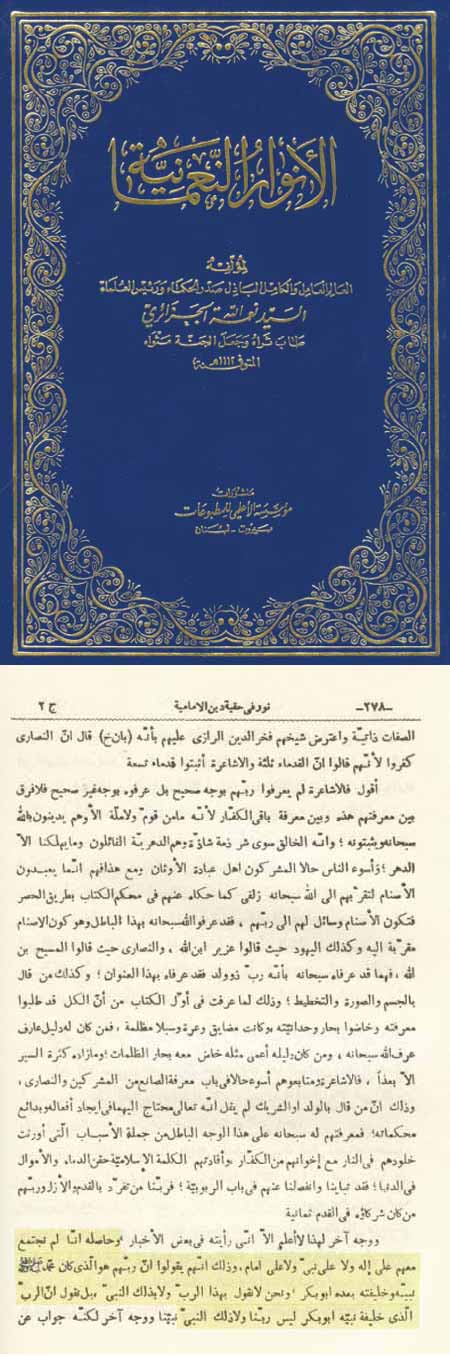 الأنوار النعمانية
لمؤلفه
العالم العامل والكامل الباذل صدر الحكماء ورئيس العلماء
السيد نعمة الله الجزائري
طاب ثراه وجعل الجنة مثواه
المتوفى سنة ١١١٢هـ
منشورات
مؤسسة الأعلمي للمطبوعات
بيروت - لبنان
ج ٢ نور في حقية دين الامامية -٢٧٨-
الصفات ذاتيّة واعترض شيخهم فخر الدين الرازى عليهم بأنّه (بان خ) قال انّ النصارى
كفروا لأنّهم قالوا انّ القدماء ثلثة والاشاعرة أثبتوا قدماء تسعة
أقول فالاشاعرة لم يعرفوا ربّهم بوجه صحيح بل عرفوه بوجه غير صحيح فلافرق
بين معرفتهم هذه وبين معرفة باقى الكفّار لأنّه مامن قوم ولاملّة الاّ وهم يدينون بالله
سبحانه ويثبتونه ؛ وانّه الخالق سوى شر ذمة شاذّة وهم الدهريّة القائلون ومايهلكنا الاّ
الدهر ؛ وأسوء الناس حالا المشركون اهل عبادة الأوثان ومع هذا فهم انّما يعبدون
الأصنام لتقرّبهم الى الله سبحانه زلفى كما حكاه عنهم فى محكم الكتاب بطريق الحصر
فتكون الأصنام وسائل لهم الى ربّهم ، فقد عرفوا الله سبحانه بهذا الباطل وهو كون الاصنام
مقرّبة اليه وكذلك اليهود حيث قالوا عزير ابن الله ، والنصارى حيث قالوا المسيح بن
الله ، فهما قد عرفاه سبحانه بأنّه ربّ ذو ولد فقد عرفاه بهذا العنوان ؛ وكذلك من قال
بالجسم والصورة والتخطيط ؛ وذلك لما عرفت فى أوّل الكتاب من أنّ الكل قد طلبوا
معرفته وخاضوا بحار وحدانيّته وكانت مضايق وعرة وسبلا مظلمة ، فمن كان له دليل عارف
عرف الله سبحانه ، ومن كان دليله أعمى مثله خاض معه بحار الظلمات ؛ ومازاده كثرة السير
الاّ بعداً ، فالاشاعرة ومتابعوهم أسوء حالا فى باب معرفة الصانع من المشركين والنصارى ،
وذلك انّ من قال بالولد او الشريك لم يقل انّه تعالى محتاج اليهما فى ايجاد أفعاله وبدائع
محكماته ؛ فمعرفتهم له سبحانه على هذا الوجه الباطل من جملة الأسباب الّتى أورثت
خلودهم فى النار مع إخوانهم من الكفّار وأفادتهم الكلمة الإسلاميّة حقن الدماء والأموال
فى الدنيا ؛ فقد تباينا وانفصلنا عنهم فى باب الربوبيّة ؛ فربّنا من تفرّد بالقدم والأزل وربّهم
من كان شركاؤه فى القدم ثمانية
ووجه آخر لهذا لاأعلم الاّ انّى رأيته فى بعض الأخبار ، وحاصله انّا لم نجتمع
معهم على إله ولا على نبىّ ولا على امام ، وذلك انّهم يقولوا انّ ربّهم هو الّذى كان محمّد ﷺ
نبيّه وخليفته بعده ابوبكر ، ونحن لانقول بهذا الربّ ولابذلك النبىّ ، بل نقول انّ الربّ
الّذى خليفة نبيّه ابوبكر ليس ربّنا ولاذلك النبىّ نبيّنا ووجه آخر لكنّه جواب عن